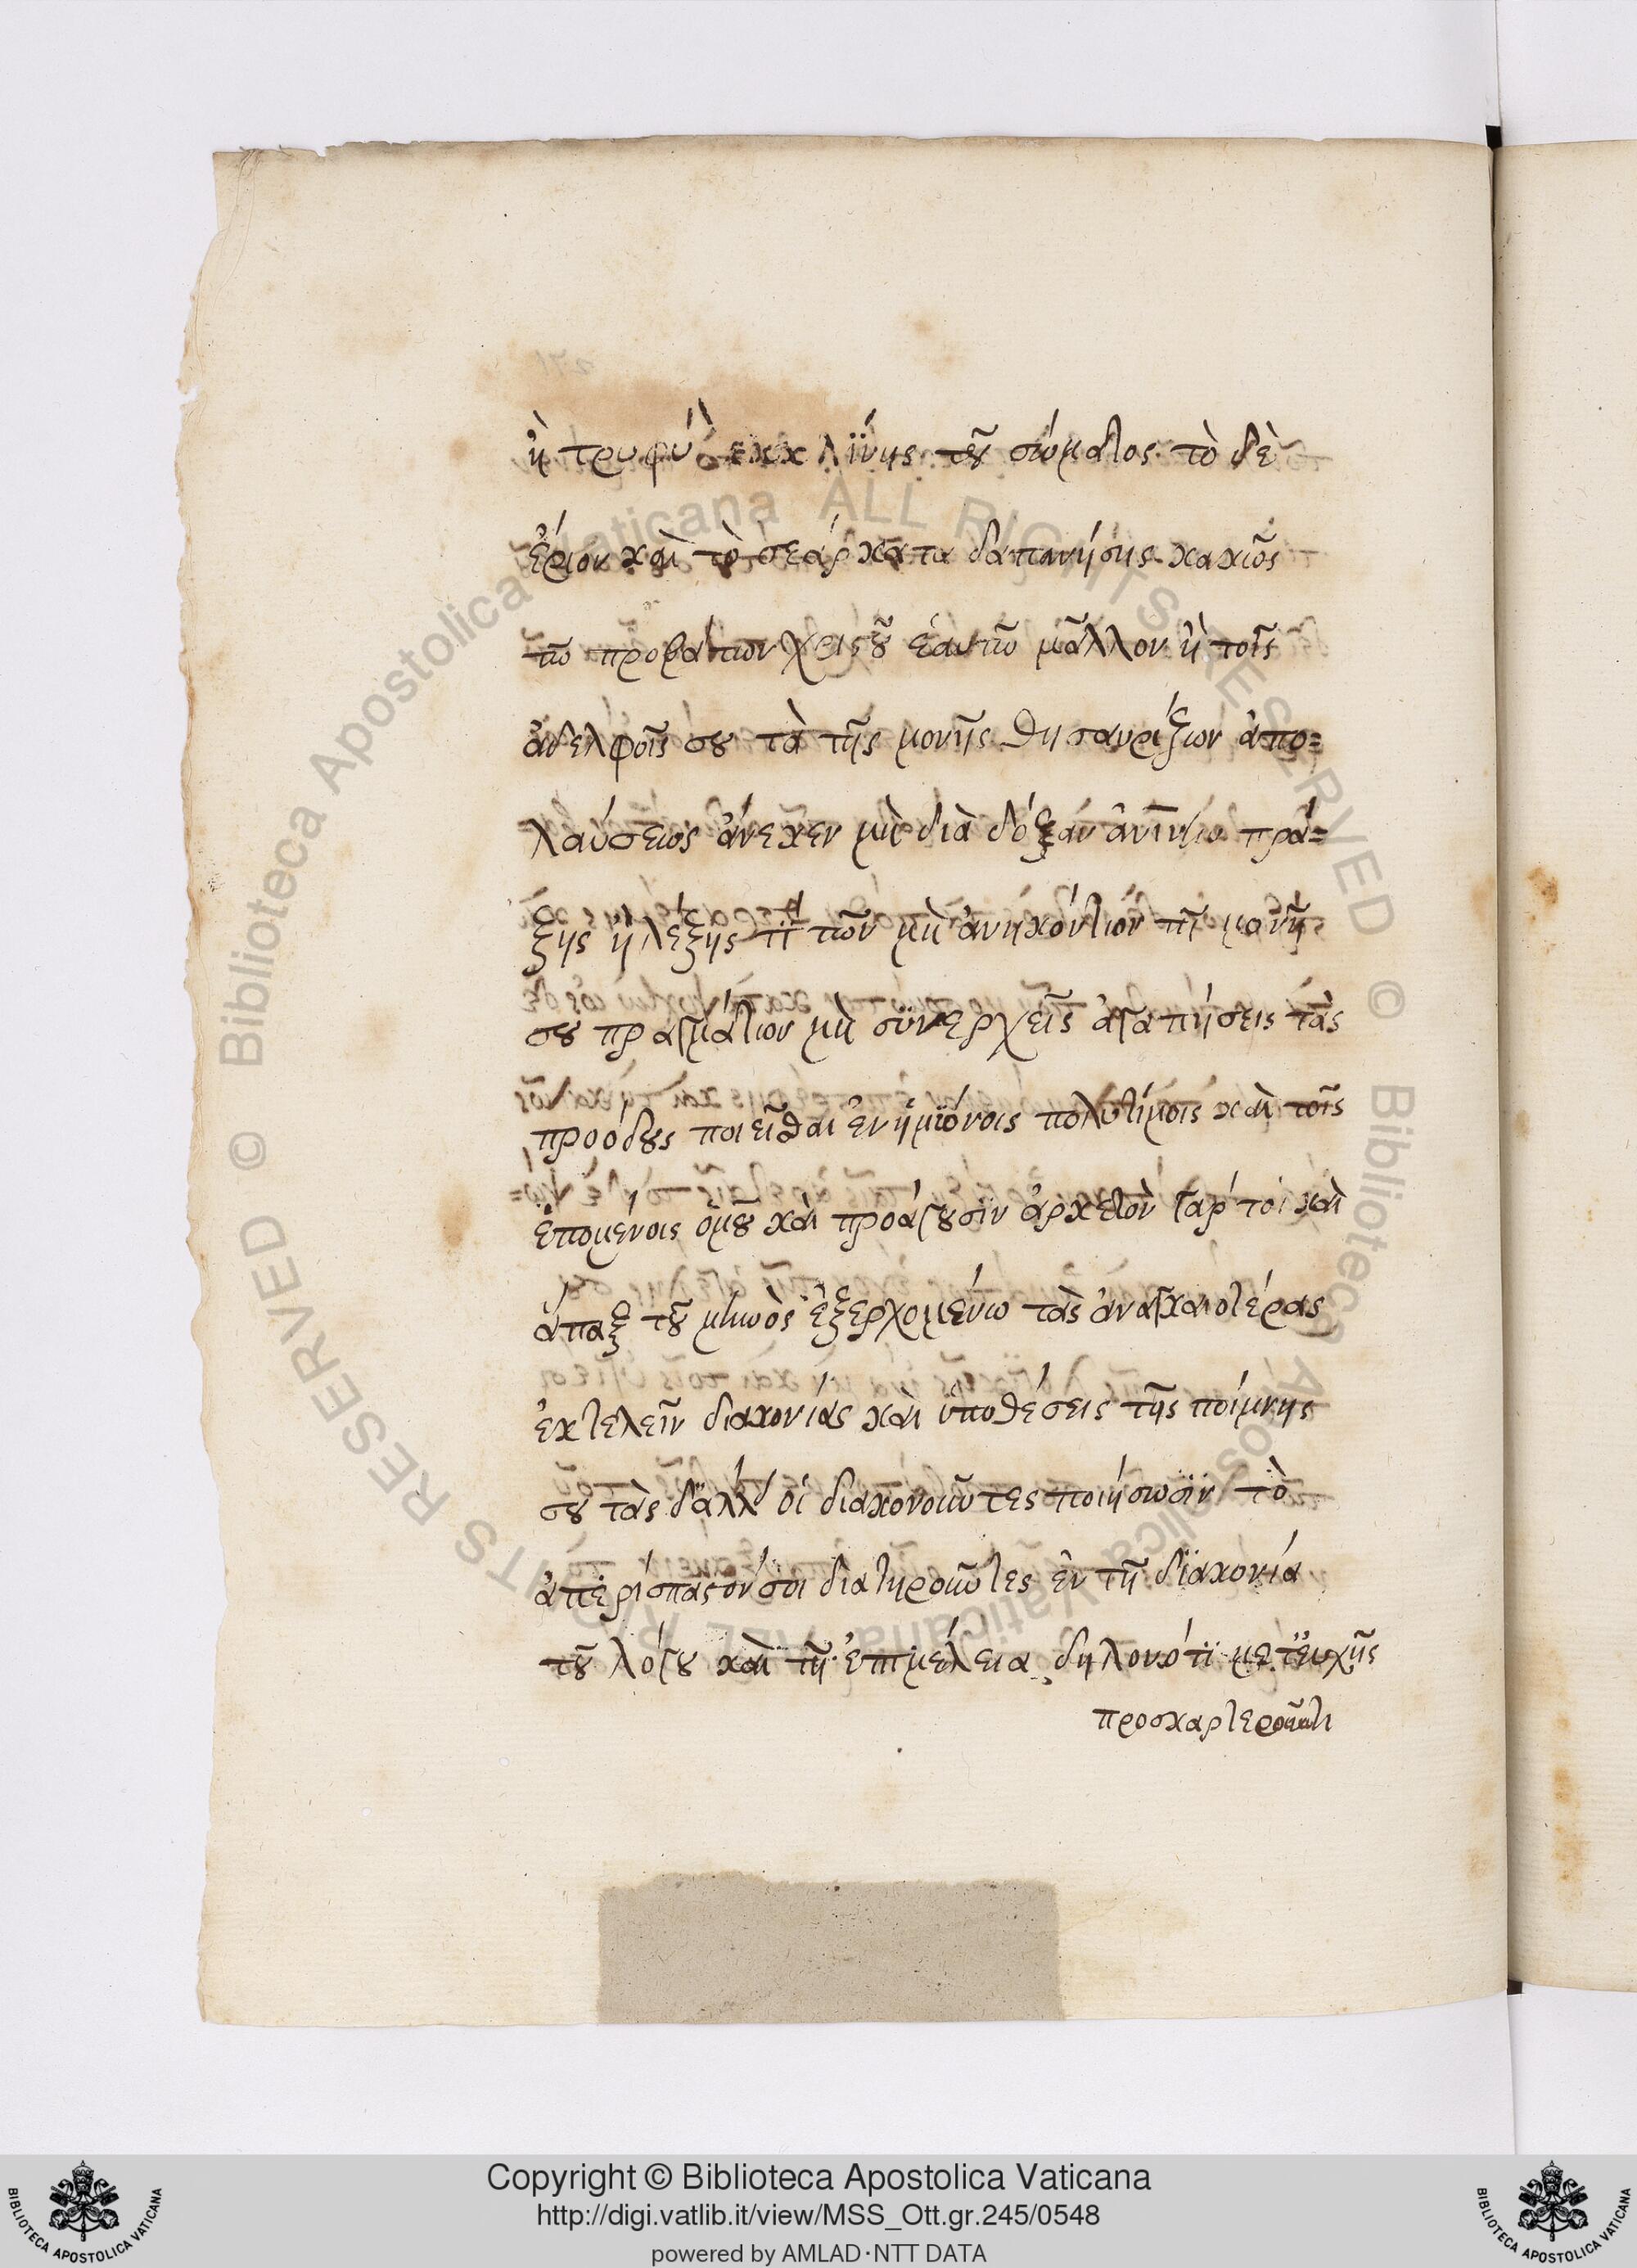 ἢ τρυφὴ ἐκκλίνῃς τοῦ σώματος τὸ δὲ
ἔριον καὶ τὸ στέαρ καταδαπανήσῃς κακῶς
τῶν προβάτων χρειστοῦ ἑαυτῶ μᾶλλον ἢ τοῖς
ἀδελφοῖς σου τὰ τῆς μονῆς θησαυρίζων ἀπο=
λαύσεως ἕνεκεν μὴ διὰ δόξαν πρά=
ξῃς ἢ λέξῃς τὶ τῶν μὴ ἀνηκόντων τῆ μονῆ
σου πραγμάτων μὴ συνεχεῖς ἀγαπήσεις τὰς
προόδους ποιεῖσθαι ἐν ἡμιόνοις πολυτίμοις καὶ τοῖς
ἑπομένοις ὁμοῦ καὶ προάγουσϊν ἀρκετὸν γάρ τοι καὶ
ἅπαξ τοῦ μηνὸς ἐξερχομένω τὰς ἀναγκαιοτέρας
ἐκτελεῖν διακονίας καὶ ὑποθέσεις τῆς ποίμνης
σου τὰς δ' ἄλλ' οἱ διακονοῦντες ποιήσωσϊν τὸ
ἀπερίσπαστόν σοι διατηροῦντες ἐν τῆ δϊακονία
τοῦ λόγου καὶ τῆ ἐπιμέλεια δηλονότϊ μετ' εὐχῆς
προσκαρτεροῦντι
Biblioteca Apostolica Vaticana ALL RIGHTS RESERVED ©
Biblioteca Apostolica Vaticana ALL RIGHTS RESERVED ©
Copyright © Biblioteca Apostolica Vaticana
http://digi.vatlib.it/view/MSS_Ott.gr.245/0548
powered by AMLAD·NTT DATA
BIBLIOTECA APOSTOLICA VATICANA
BIBLIOTECA APOSTOLICA VATICANA